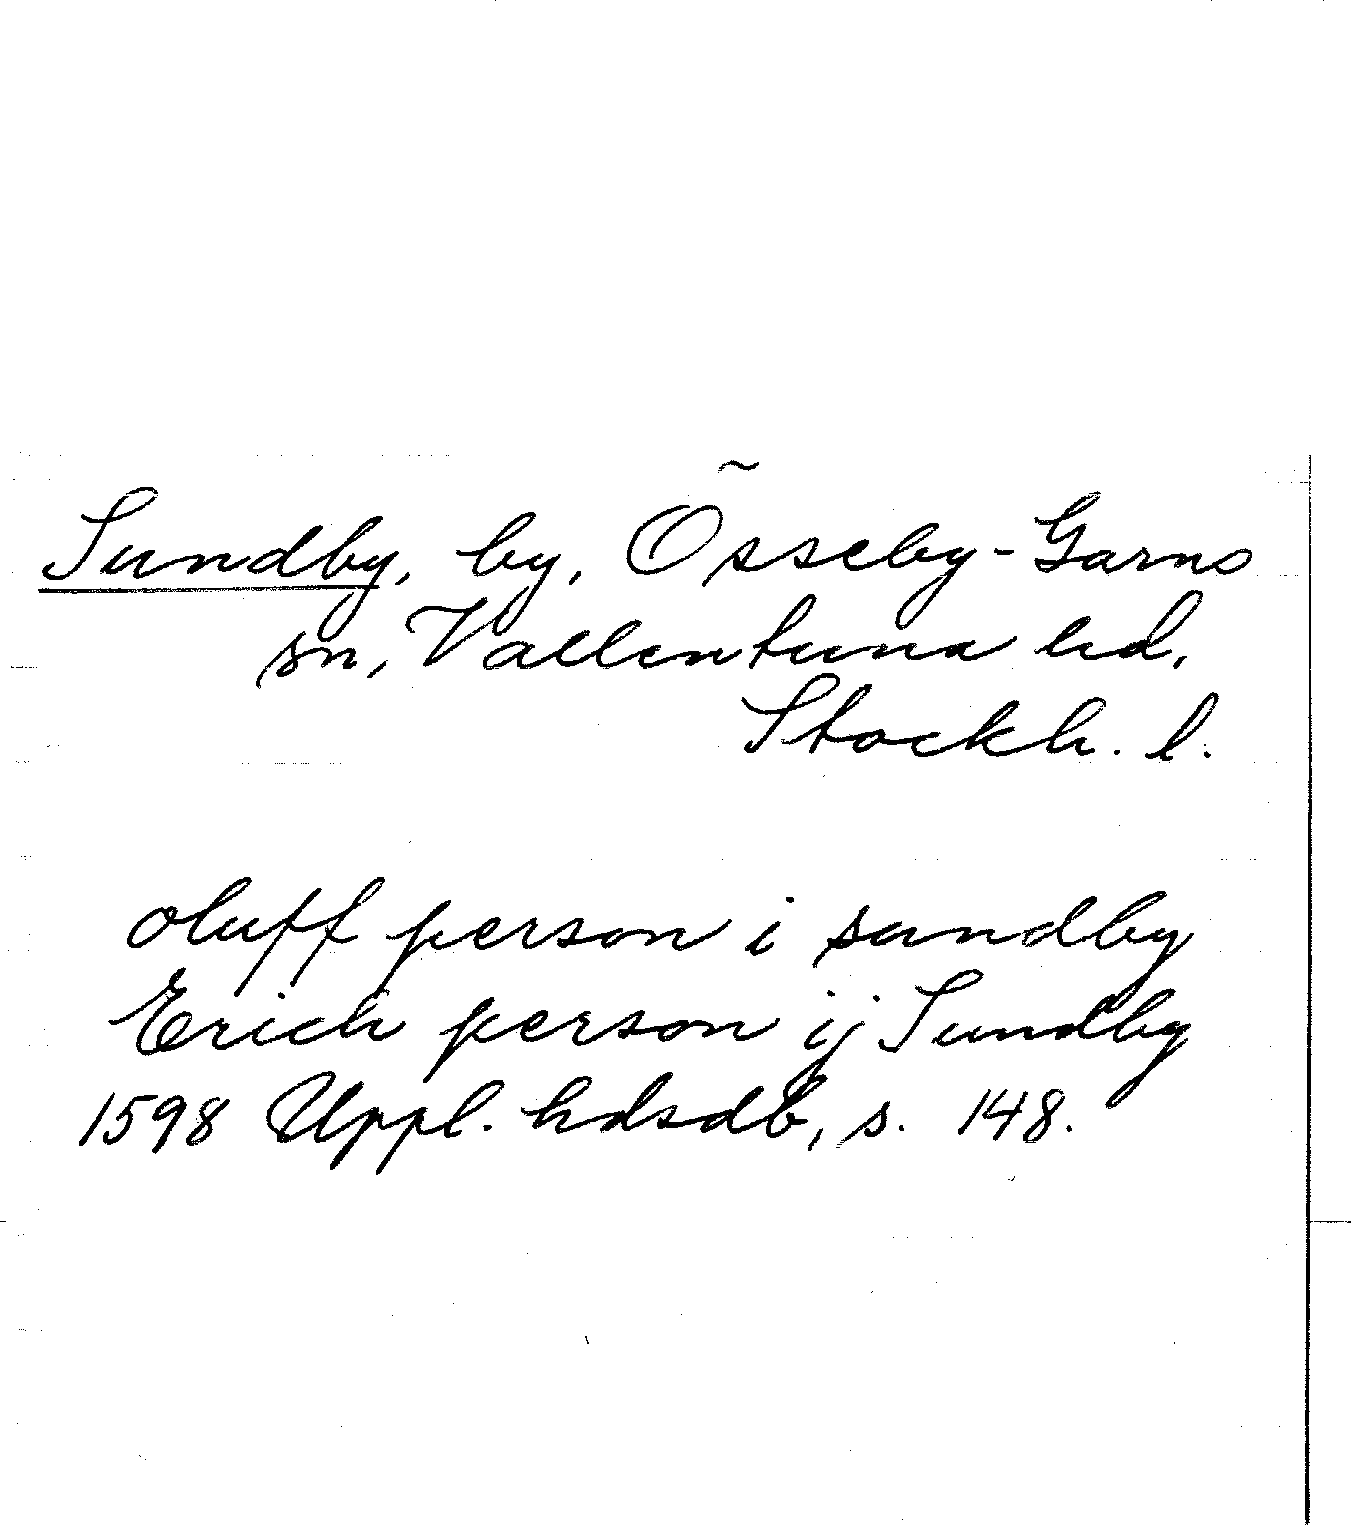 Sundby, by, Össeby-Garns
sn, Vallentuna hd,
Stockh. l.
oluff person i sundby
Erich person ij Sundby
1598 Uppl. hdsdb, s. 148.